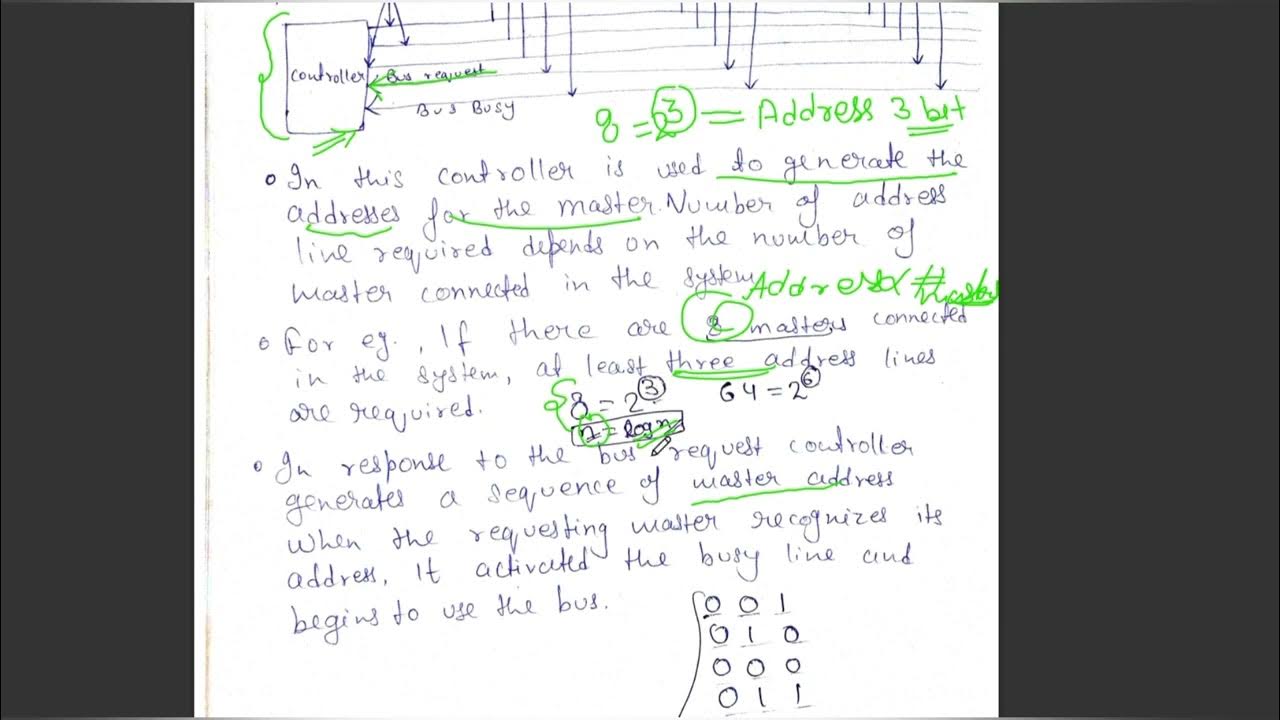 Controller
Bus request
Bus Busy
8 = 2³ = Address 3 bit
• In this controller is used to generate the
addresses for the master. Number of address
line required depends on the number of
master connected in the system
Address ∝ #
• For eg., If there are 8 masters connected
in the system, at least three address lines
are required.
8 = 2³
64 = 2⁶
• In response to the bus request controller
generates a sequence of master address
when the requesting master recognizes its
address, It activated the busy line and
begins to use the bus.
0 0 1
0 1 0
0 0 0
0 1 1